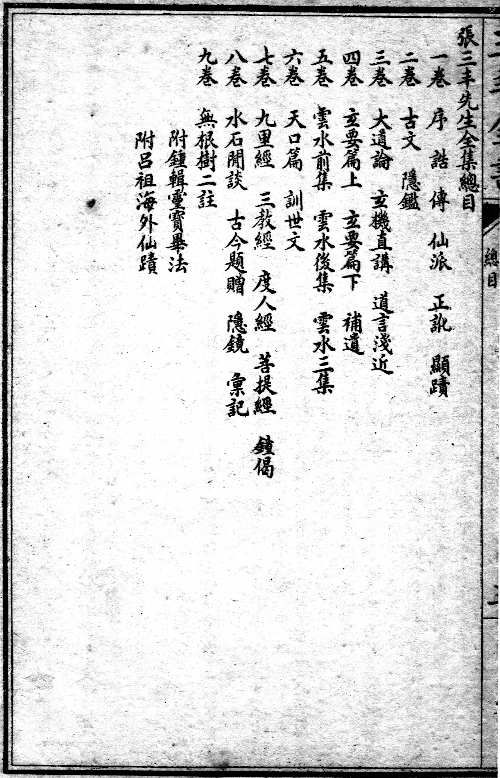 張三丰先生全集總目
一卷 序 誥 傳 仙派 正訛 顯蹟
二卷 古文 隱鑑
三卷 大道論 玄機直講 道言淺近
四卷 玄要篇上 玄要篇下 補遺
五卷 雲水前集 雲水後集 雲水三集
六卷 天口篇 訓世文
七卷 九皇經 三教經 度人經 菩提經 鐘偈
八卷 水石閒談 古今題贈 隱鏡 彙記
九卷 無根樹二註
附鍾輯靈寶畢法
附呂祖海外仙蹟
總目